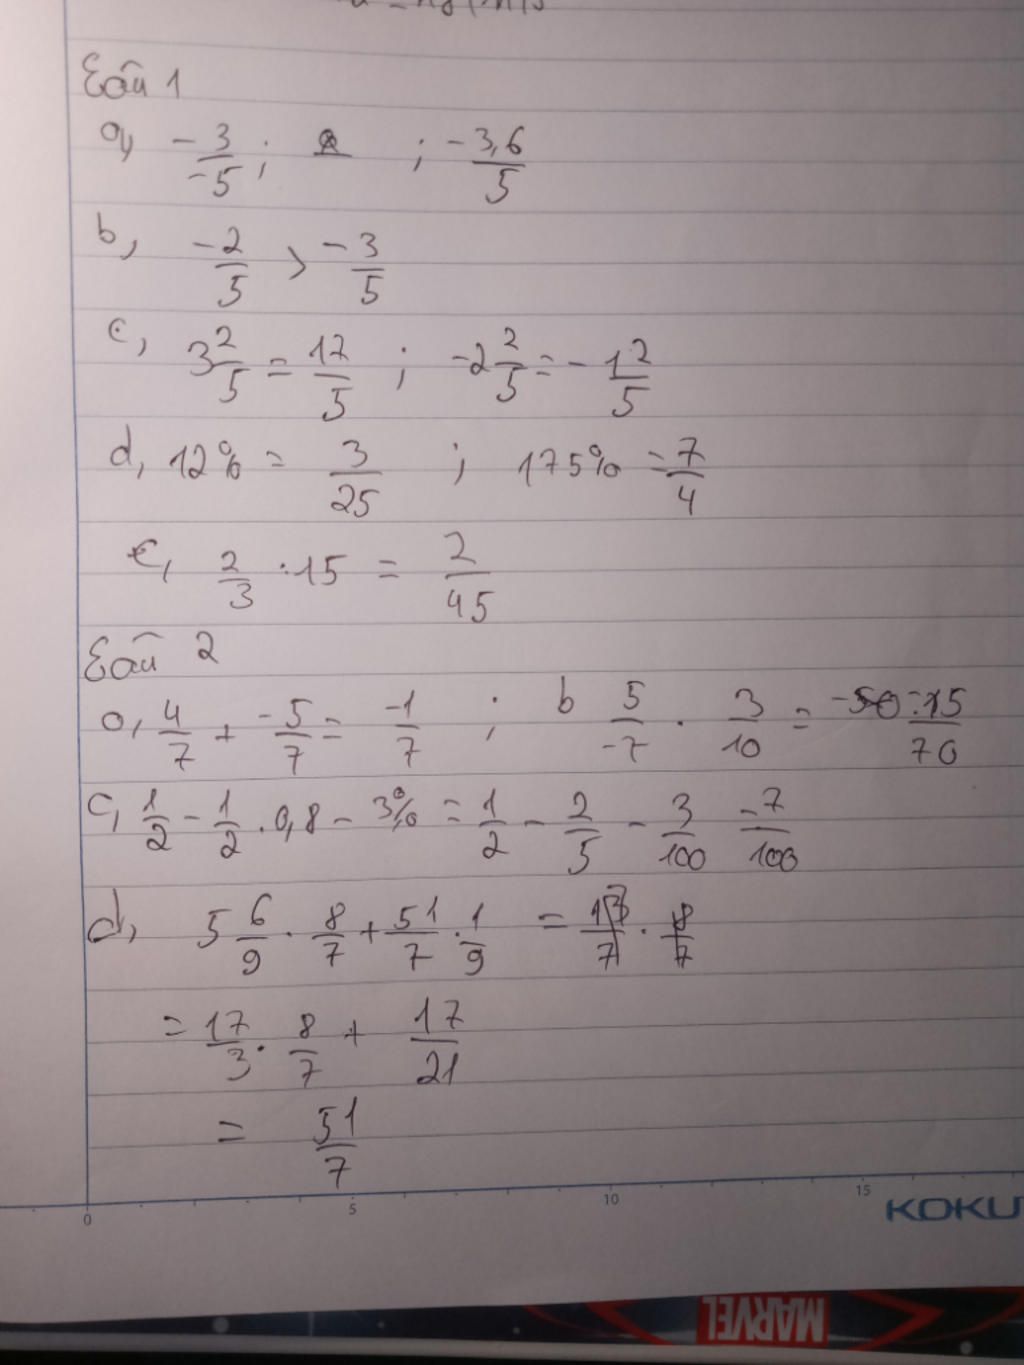 Câu 1
a, -3/-5 ; ; -3,6/5
b, -2/5 > -3/5
c, 3 2/5 = 17/5 ; -2 2/5 = -12/5
d, 12% = 3/25 ; 175% = 7/4
e, 2/3 . 15 = 2/45
Câu 2
a, 4/7 + -5/7 = -1/7 ; b 5/-7 . 3/10 = -15/70
c, 1/2 - 1/2 . 0,8 - 3% = 1/2 - 2/5 - 3/100 -7/100
d, 5 6/9 . 8/7 + 51/7 . 1/9 =
= 17/3 . 8/7 + 17/21
= 51/7
0 5 10 15
KOKU
MARVEL